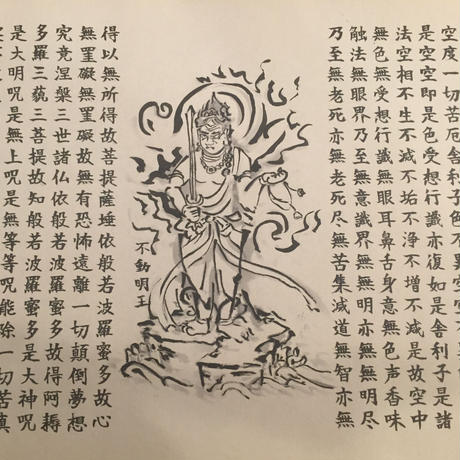 空度一切苦厄舍利子色不異
是空空即是色受想行識亦復如是舍利子是諸
法空相不生不滅不垢不浄不増不減是故空中
無色無受想行識無眼耳鼻舌身意無色声香味
触法無眼界乃至無意識界無無明亦無無明尽
乃至無老死亦無老死尽無苦集滅道無智亦無
不動明王
得以無所得故菩提薩埵依般若波羅蜜多故心
無罣礙無罣礙故無有恐怖遠離一切顛倒夢想
究竟涅槃三世諸仏依般若波羅蜜多故得阿耨
多羅三藐三菩提故知般若波羅蜜多是大神呪
是大明呪是無上呪是無等等呪能除一切苦真